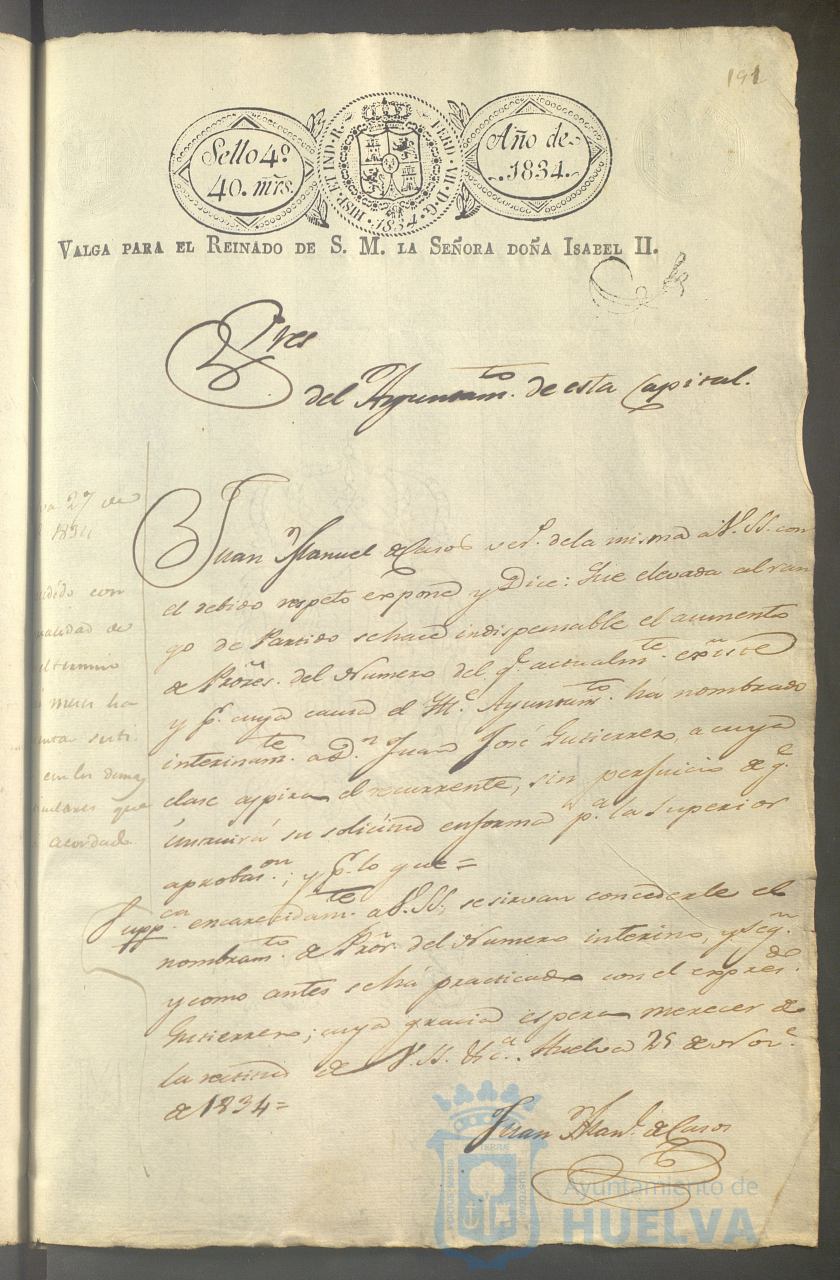 191
Sello 4º
40. mrs.
HISP. ET IND. R. FERD. VII. D. G. 1834.
Año de
1834.
VALGA PARA EL REINADO DE S. M. LA SEÑORA DOÑA ISABEL II.
Sres
del Ayuntamto. de esta Capital.
27 de
1834
Juan Manuel de Casos vcº. de la misma a V. SS. con
el debido respeto expone y Dice: Que elevada al ran
go de Partido se hace indispensable el aumento
de Prõres. del Numero del q.e actualmte. existe
y p.r cuya causa el Yll.e Ayuntamto. há nombrado
interinamte. a D.n Juan José Gutierrez, a cuya
clase aspira el recurrente, sin perjuicio de q.e
instruirá su solicitud en forma p.a la Superior
aprobas.on; y p.r lo que =
Supp.ca encarecidamte. a V. SS. se sirvan concederle el
nombramto. de Prõr. del Numero interino, y seg.n
y como antes se há practicado con el expresdo.
Gutierrez; cuya gracia espera merecer de
la rectitud de V. SS. &c.a Huelva 25 de Nov.e
de 1834 =
con
de
termino
ha
en los demas
que
acordado
Juan Man.l de Casos
Ayuntamiento de
HUELVA